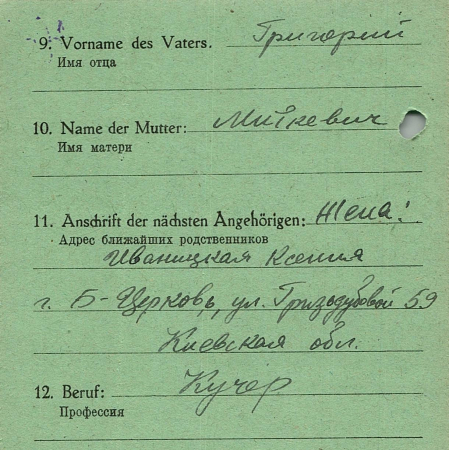 9. Vorname des Vaters. Григорий
Имя отца
10. Name der Mutter: Миткевич
Имя матери
11. Anschrift der nächsten Angehörigen: Жена:
Адрес ближайших родственников
Иваницкая Ксения
г. Б-Церковь, ул. Гризодубовой 59
Киевская обл.
12. Beruf: Кучер
Профессия